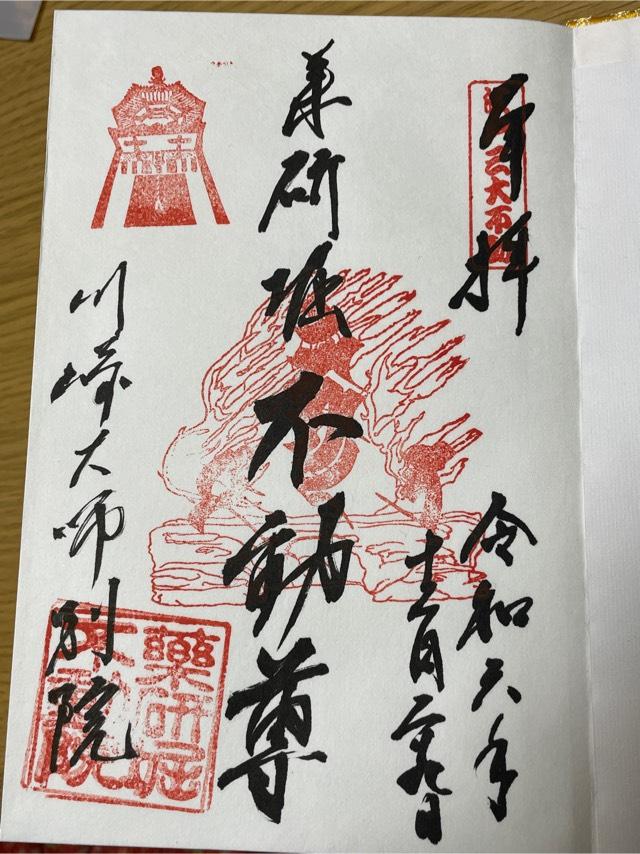 奉拝
三大不動
令和六年
十二月二十九日
薬研堀不動尊
川崎大師別院
藥研堀
不動院